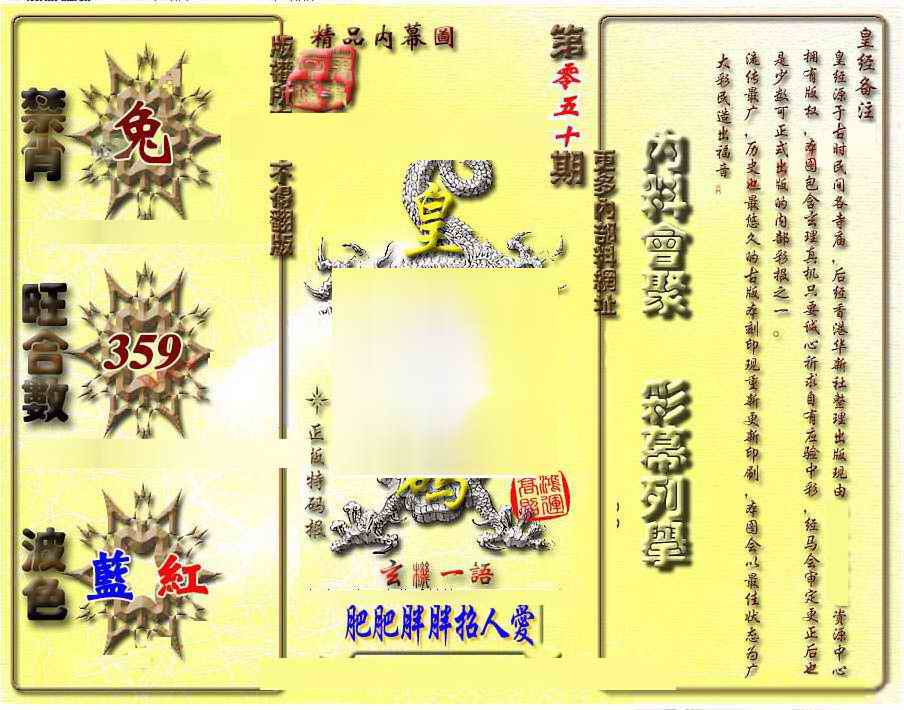 禁肖
兔
旺合數
359
波色
藍 紅
版權所
不得翻版
精品内幕圖
第零五十期
更多內部料網址
皇
碼
正版特码报
鴻運
玄機一語
肥肥胖胖招人愛
内料會聚
彩幕列舉
皇经备注
皇经源于古时民间各寺庙，后经香港华新社整理出版现由
资源中心
拥有版权，本图包含玄理真机只要诚心祈求自有应验中彩，经马会审定更正后也
是少数可正式出版的内部彩报之一。
流传最广，历史也最悠久的古版本刻印现重新更新印刷，本图会以最佳状态为广
大彩民造出福音。